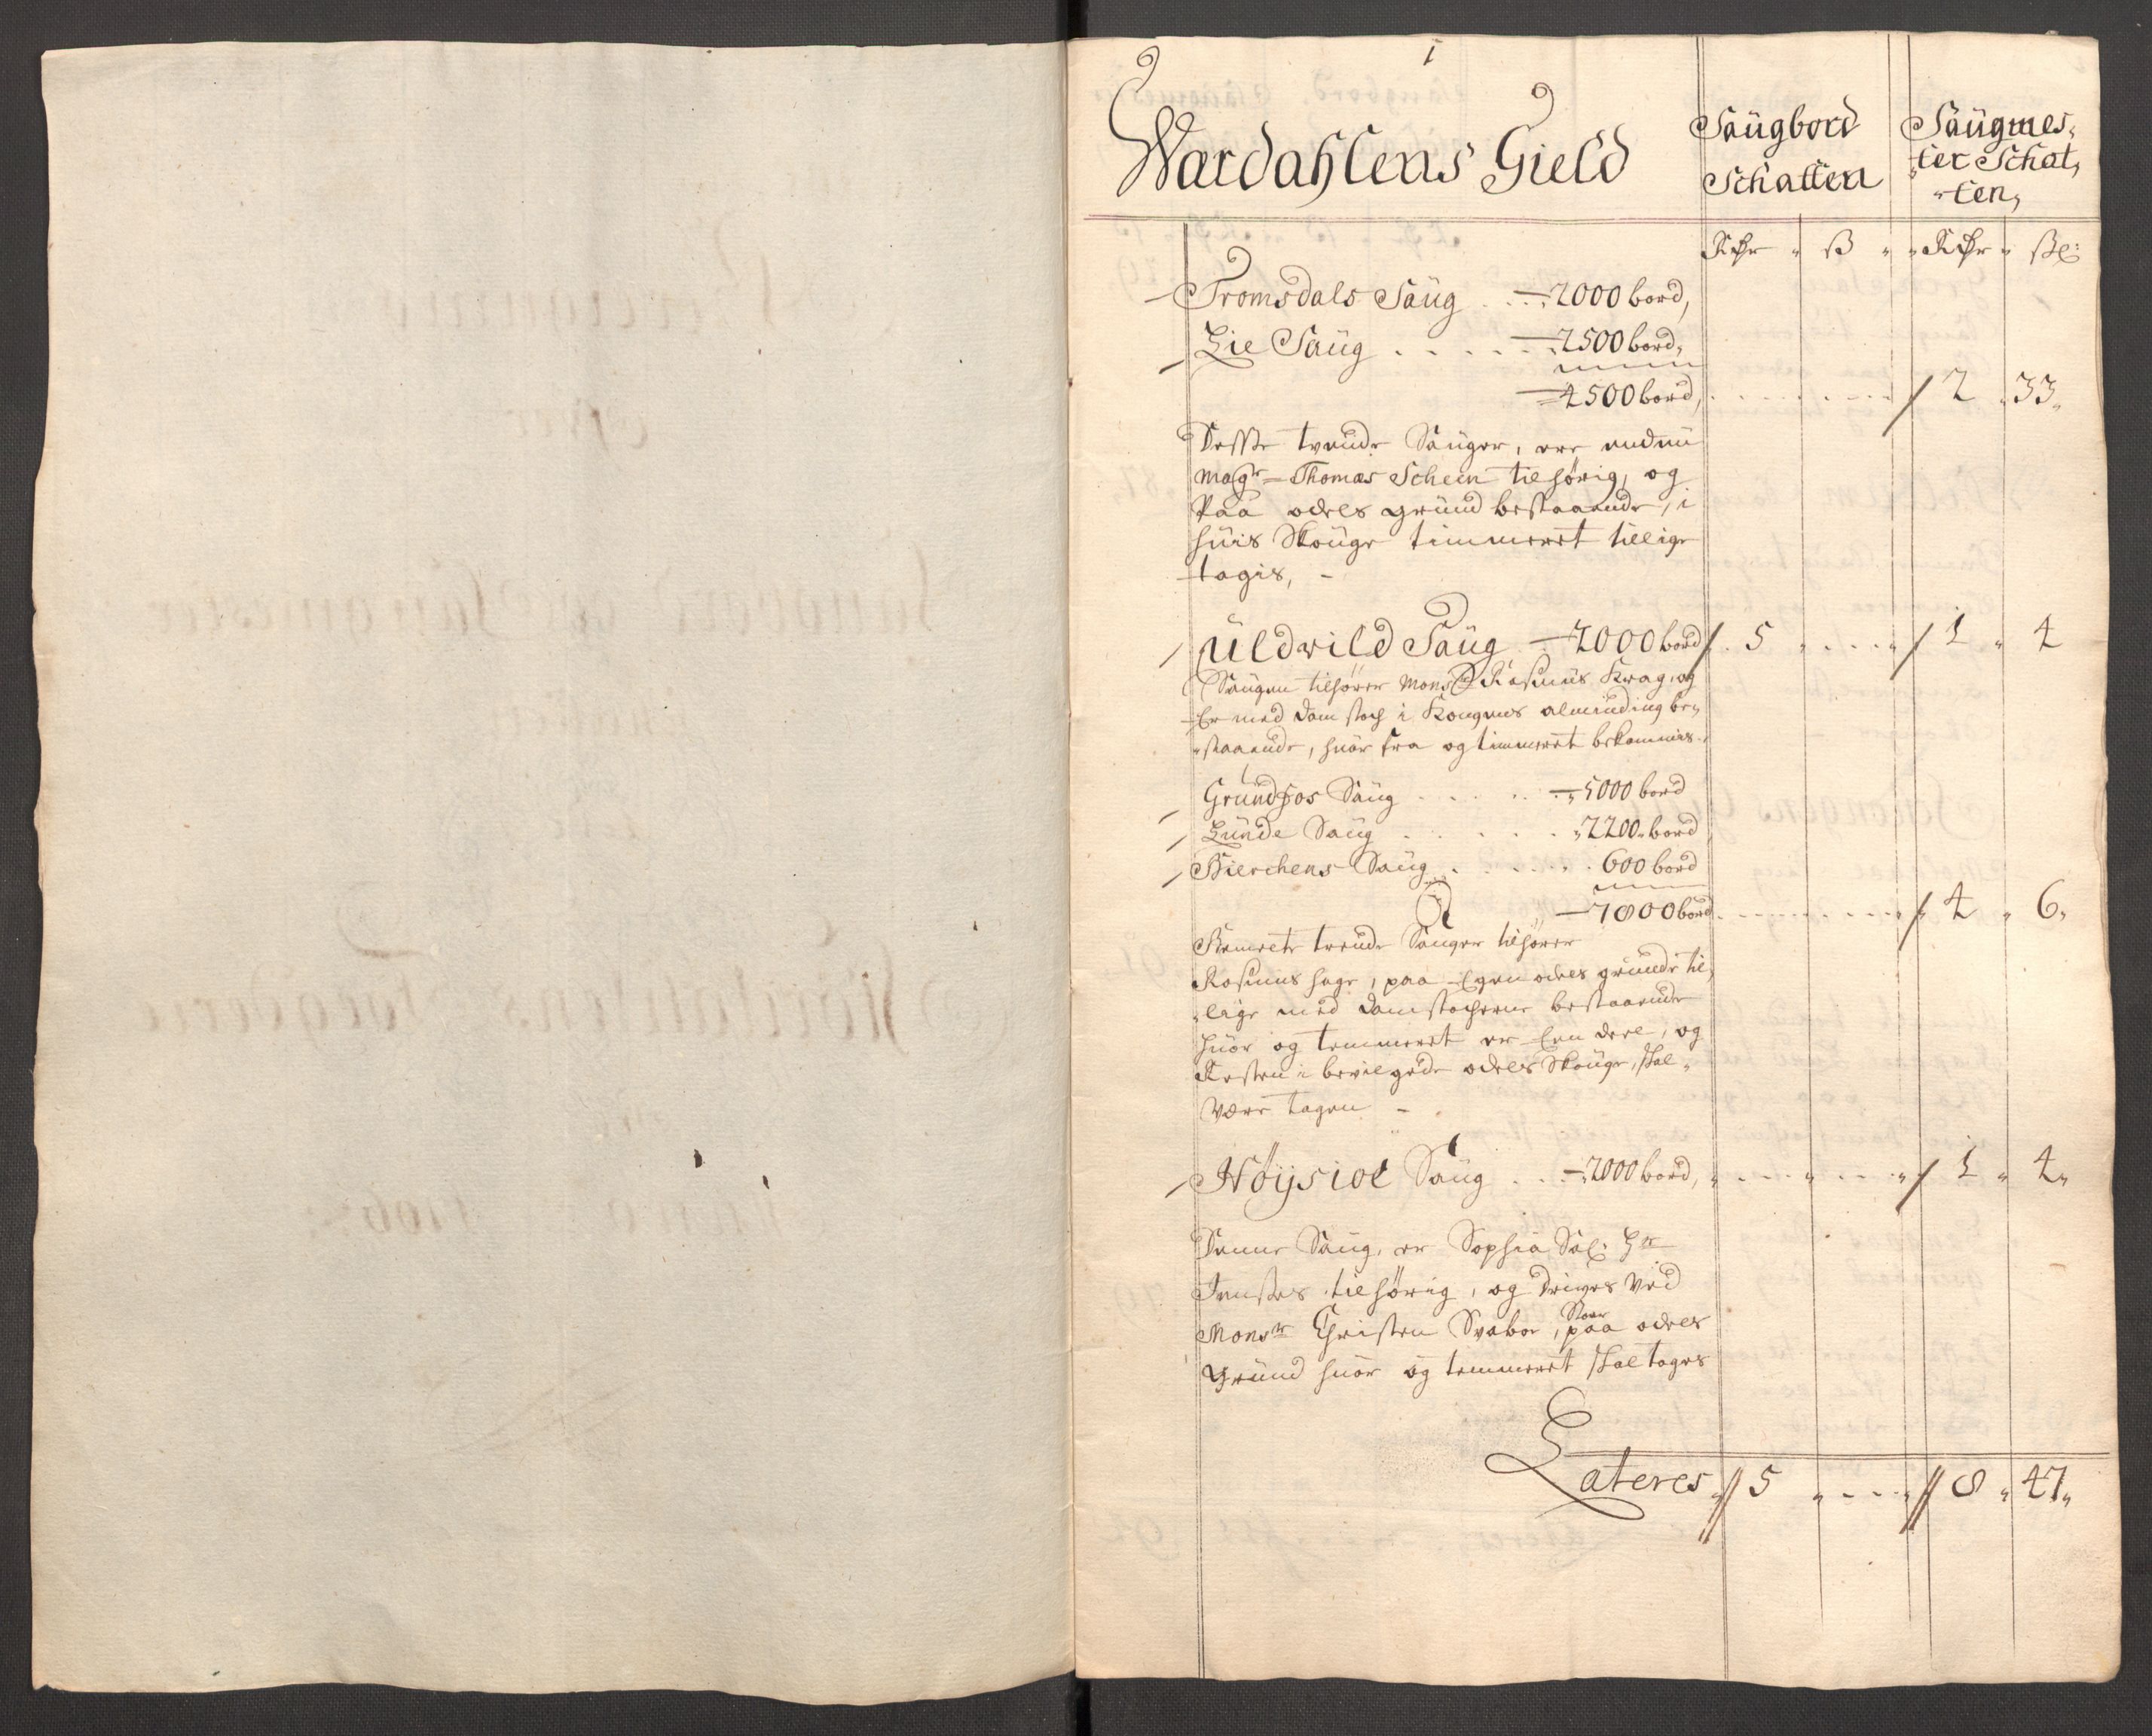 1
Wardahlens Gield
Saugbord
Schatten
Saugmes,
ter Schat,
ten,
Rdr ß Rdr ßl:
Tromsdals Saug 2000 bord,
Lie Saug 2500 bord,
4500 bord, 2 33
Desse tvende Sauger, ere endnu
Magr Thomas Schein tilhørig, og
Paa odels grund bestaaende, i
huis Skouge timmeret tillige
tagis,
Uldvild Saug 2000 bord 5 1 4
Saugen tilhører Monsr Rasmus Krag, og
Er med dam stoch i Kongens alminding be,
staaende, huor fra og timmeret bekommis.
Grundfos Saug 5000 bord
Lunde Saug 2200 bord
Bierchens Saug 600 bord
7800 bord 4 6
trende Sauger tilhører
Rasmus hage, paa Egen odels grunde til,
lige med damstocherne bestaaende
huor og temmeret er Een deel, og
Resten i bevilgede odels Skouge, skal
være tagen
Høijsiøe Saug 2000 bord, 1 4
Denne Saug, er Sophia Sal: Hr
Jenses tilhørig, og drives ved
Monsr Christen Svaboe, Staar paa odels
Grund huor og temmeret skal tages
Lateres 5 8 47